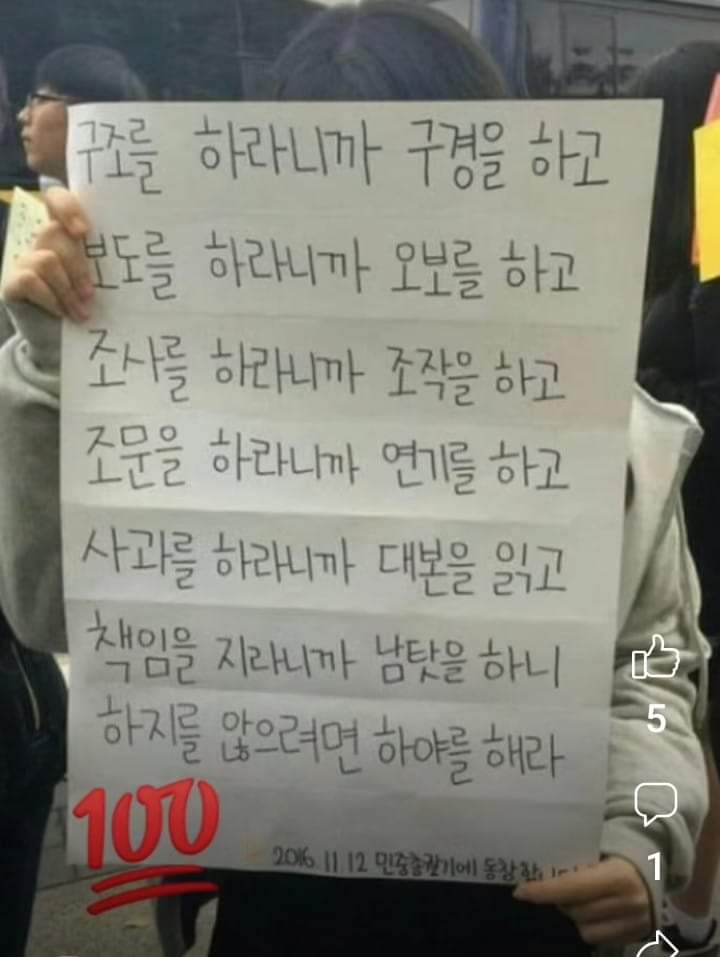 구조를 하라니까 구경을 하고
보도를 하라니까 오보를 하고
조사를 하라니까 조작을 하고
조문을 하라니까 연기를 하고
사과를 하라니까 대본을 읽고
책임을 지라니까 남탓을 하니
하지를 않으려면 하야를 해라
100
2016.11.12 민중총궐기에
5
1